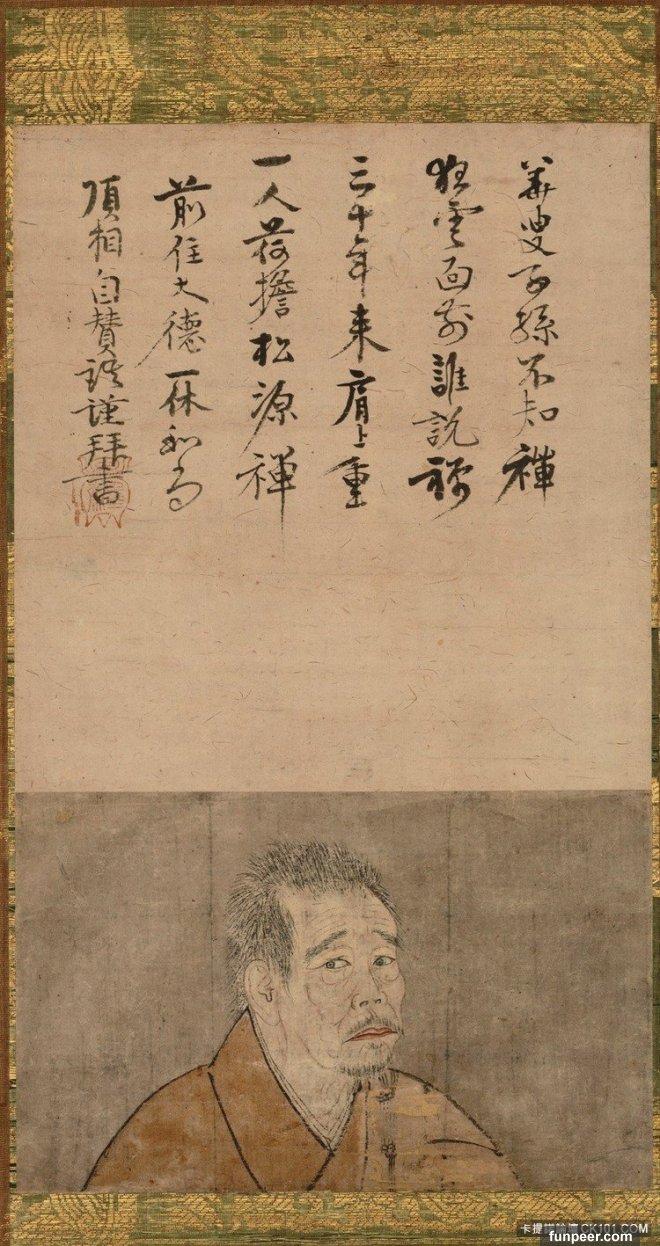 華叟子孫不知禪
狂雲面前誰說禪
三十年来肩上重
一人荷擔松源禪
前住大德一休和尚
頂相自賛語謹拜書
卡提諾論壇 CK101.COM
funpeer.com